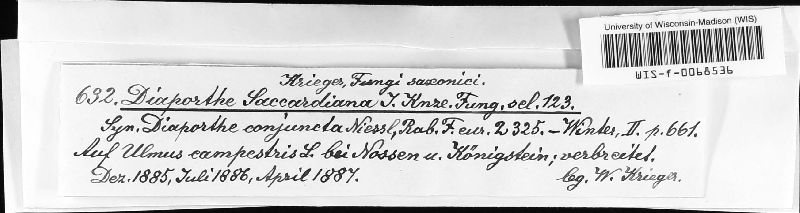 University of Wisconsin-Madison (WIS)
WIS-f-0068536
Krieger, Fungi saxonici.
632. Diaporthe Saccardiana J. Knze. Fung. sel. 123.
Syn. Diaporthe conjuncta Niessl, Rab. F. eur. 2325. – Winter, II. p. 661.
Auf Ulmus campestris L. bei Nossen u. Königstein; verbreitet.
Dez. 1885, Juli 1886, April 1887. leg. W. Krieger.